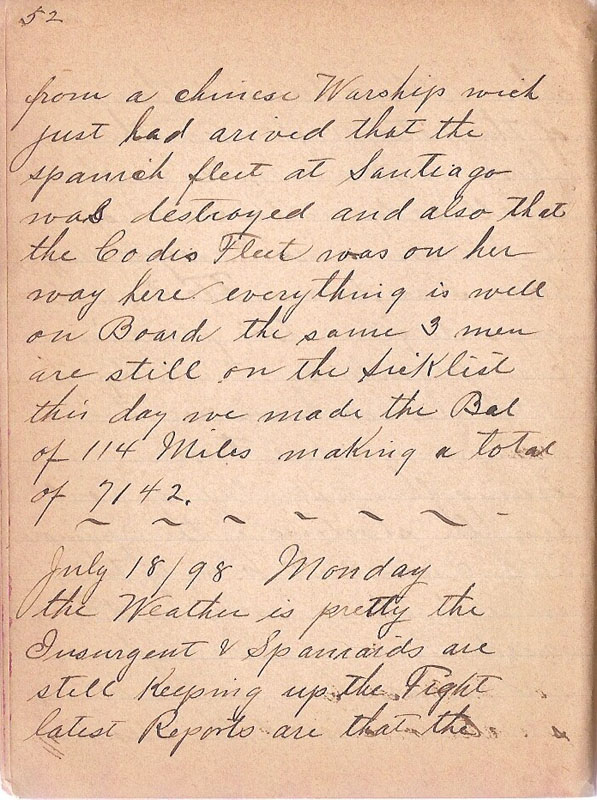 52
from a chinese Warship wich
just had arived that the
spanich fleet at Santiago
was destroyed and also that
the Codis Fleet was on her
way here everything is well
on Board the same 3 men
are still on the sicklist
this day we made the Bal
of 114 Miles making a total
of 7142.
July 18/98 Monday
the Weather is pretty the
Insurgent & Spaniaids are
still Keeping up the Fight
latest Reports are that the